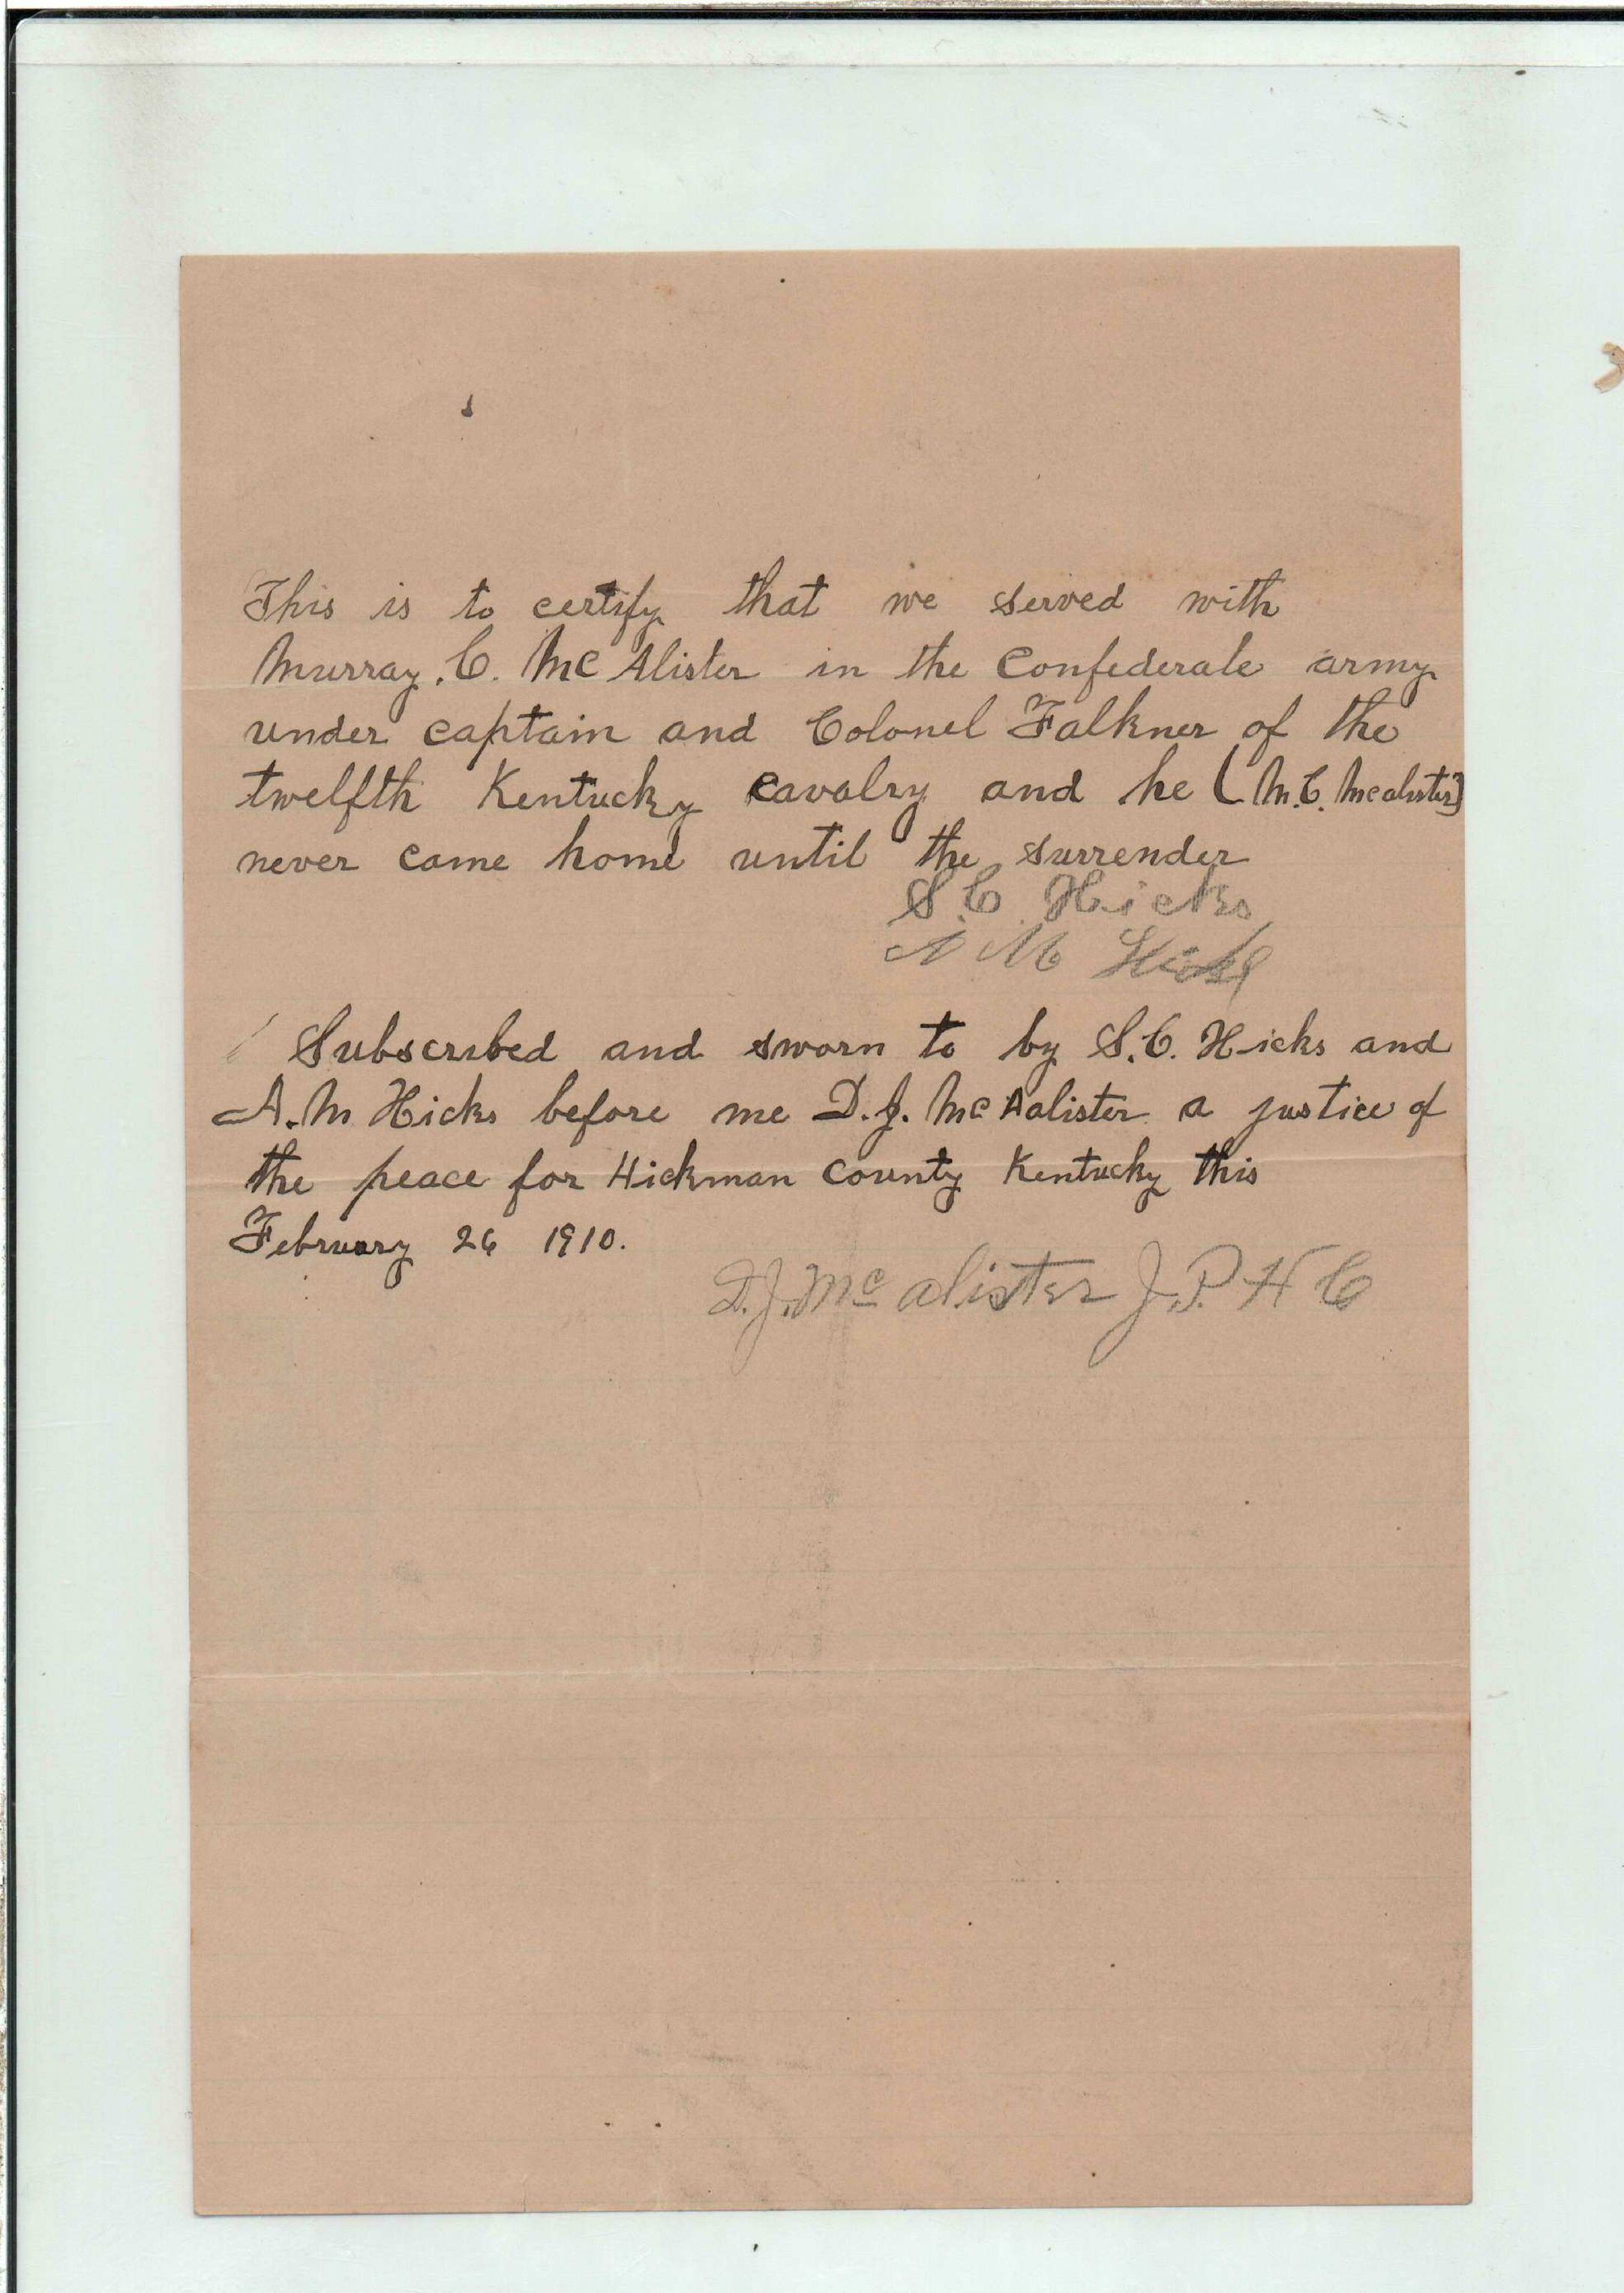 This is to certify that we served with
Murray. C. McAlister in the Confederate army
under captain and Colonel Falkner of the
twelfth Kentucky cavalry and he (M.C. Mcalister]
never came home until the surrender
S.C. Hicks
A M Hicks
Subscribed and sworn to by S.C. Hicks and
A.M Hicks before me D.J. McAalister a justice of
the peace for Hickman county Kentucky this
February 26 1910.
D.J. Mc alister J.P. H C